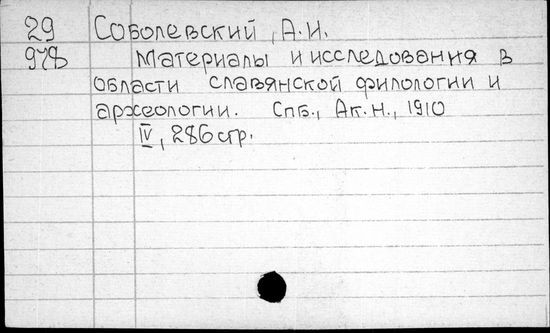 29 Соболевский, А.И.
978 Материалы и исследования в
области славянской филологии и
археологии. Спб., Ак.Н., 1910
IV, 286 стр.